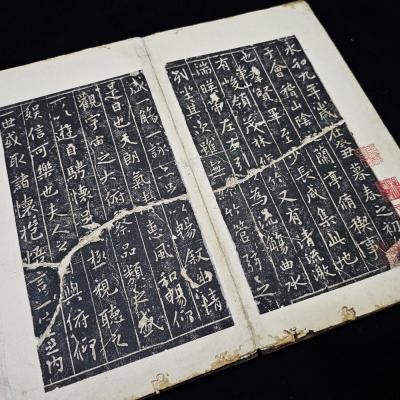 永和九年歲在癸丑暮春之初
于會稽山陰蘭亭脩稧事
也群賢畢至少長咸集此地
有峻領茂林脩竹又有清流激
湍暎帶左右引為流觴曲水
列坐其次雖無竹管弦之
盛一觴一詠以暢敘幽情
是日也天朗氣清惠風和暢仰
觀宇宙之大俯察品類之盛
以遊目騁懷足極視聽之
娛信可樂也夫人之與俯仰
世或取諸懷抱悟言一之內